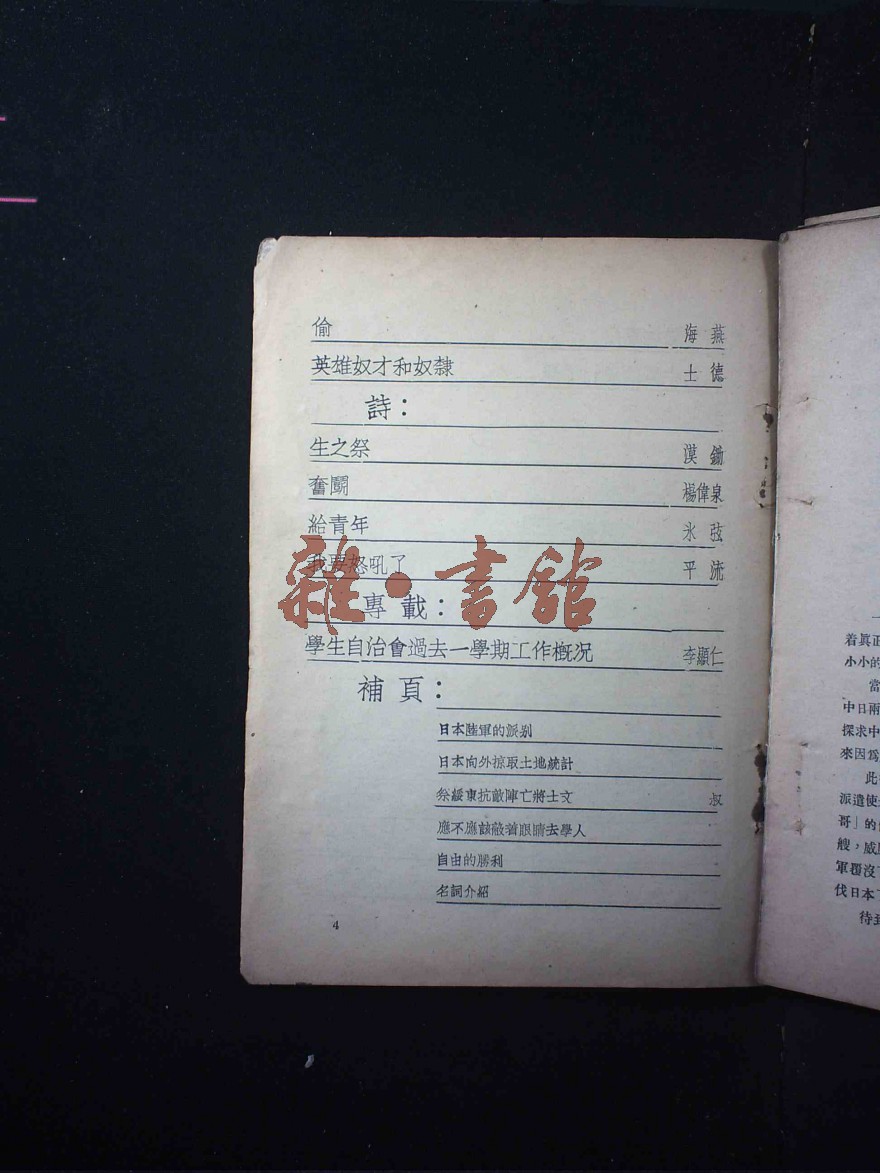 偷 海燕
英雄奴才和奴隸 士德
詩：
生之祭 漠鋤
奮鬬 楊偉泉
給青年 氷弦
我要怒吼了 平流
專載：
學生自治會過去一學期工作概況 李顯仁
補頁：
日本陸軍的派别
日本向外掠取土地統計
祭綏東抗敵陣亡將士文 叔
應不應該蔽着眼睛去學人
自由的勝利
名詞介紹
4
雜·書館
一
着眞正
小小的
當
中日兩
探求中
來因爲
此
派遣使
哥」的
艘，威
軍覆沒
伐日本
待到